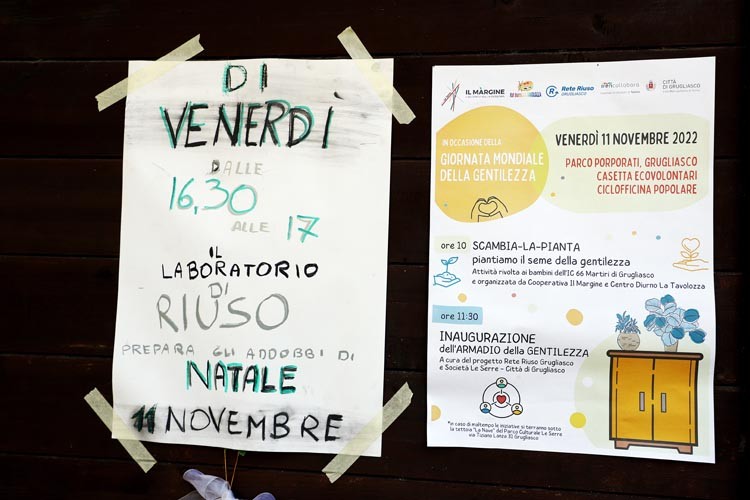 DI
VENERDÌ
DALLE
16,30
ALLE 17
IL
LABORATORIO
DI
RIUSO
PREPARA GLI ADDOBBI DI
NATALE
11 NOVEMBRE
IL MARGINE
Rete Riuso
GRUGLIASCO
CITTÀ
DI GRUGLIASCO
IN OCCASIONE DELLA
GIORNATA MONDIALE
DELLA GENTILEZZA
VENERDÌ 11 NOVEMBRE 2022
PARCO PORPORATI, GRUGLIASCO
CASETTA ECOVOLONTARI
CICLOFFICINA POPOLARE
ore 10 SCAMBIA-LA-PIANTA
piantiamo il seme della gentilezza
Attività rivolta ai bambini dell'IC 66 Martiri di Grugliasco
e organizzata da Cooperativa Il Margine e Centro Diurno La Tavolozza
ore 11:30
INAUGURAZIONE
dell'ARMADIO della GENTILEZZA
A cura del progetto Rete Riuso Grugliasco
e Società Le Serre - Città di Grugliasco
*in caso di maltempo le iniziative si terranno sotto
la tettoia "La Nave" del Parco Culturale Le Serre
via Tiziano Lanza 31 Grugliasco